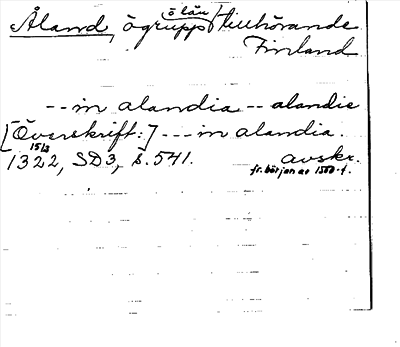 Åland, ögrupp o län tillhörande
Finland
-- in alandia -- alandie
[Överskrift:] --- in alandia.
1322, 15/8 SD3, s. 541. avskr.
fr. början av 1500-t.